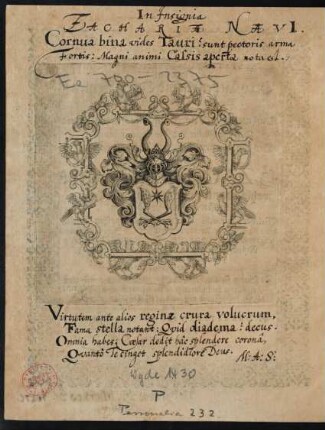 In Insignia
ZACHARIÆ NÆVI.
Cornua bina vides Tauri: sunt pectoris arma
Fortis: Magni animi Cassis aperta nota est.
Virtutem ante alios reginæ crura volucrum,
Fama stella notant: Quid diadema? decus.
Omnia habes: Cæsar dedit hac splendere corona,
Quanto Te cinget splendidiore Deus.
M. A. S.
P
Personalia 232